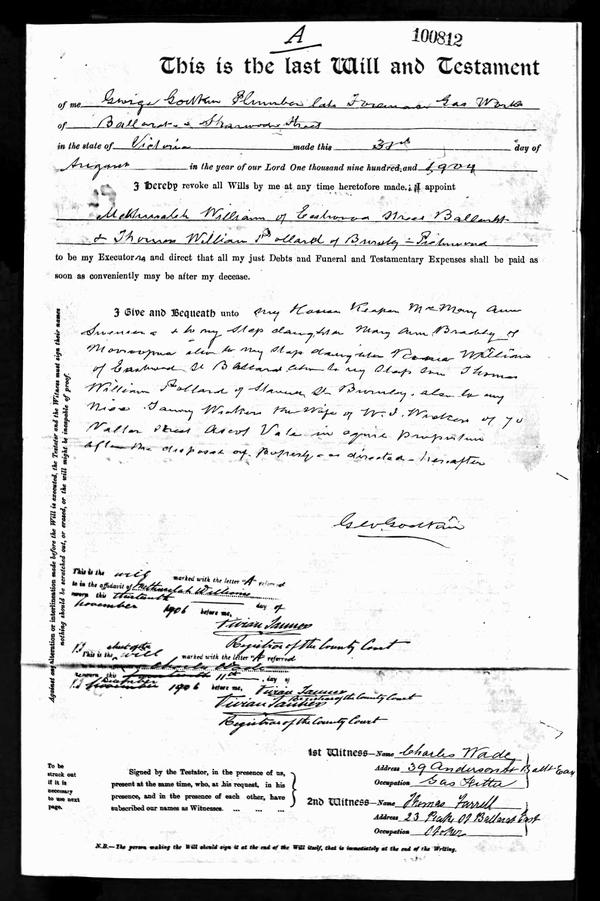 A
100812
This is the last Will and Testament
of me George Godkin Plumber late Foreman Gas Works
of Ballarat Street
in the state of Victoria made this 31st day of
August in the year of our Lord One thousand nine hundred and 1904
I Hereby revoke all Wills by me at any time heretofore made. I appoint
Methuselah William of Eastwood Street Ballarat
& Thomas William Pollard of Burnley Richmond
to be my Executors and direct that all my just Debts and Funeral and Testamentary Expenses shall be paid as
soon as conveniently may be after my decease.
I Give and Bequeath unto my House Keeper Mrs Mary Ann
& to my Step daughter Mary Ann Braddy of
also to my Step daughter Williams
of Eastwood St Ballarat also to my Step Son Thomas
William Pollard of St Burnley also to my
Niece Fanny Wickens the Wife of W. J. Wickens of 70
Street Ascot Vale in equal
after the disposal of Property as directed hereafter
Geo Godkin
Against any alteration or interlineation made before the Will is executed, the Testator and the Witness must sign their names
nothing should be scratched out, or erased, or the will might be incapable of proof.
This is the will marked with the letter A referred
to in the affidavit of Methuselah Williams
sworn this thirteenth day of
November 1906 before me,
Vivian Tanner
Registrar of the County Court
This is the will marked with the letter A referred
Charles Wade
sworn this 11th day of
December 1906 before me, Vivian Tanner
Registrar of the County Court
Vivian Tanner
Registrar of the County Court
To be
struck out
if it is
necessary
to use next
page.
Signed by the Testator, in the presence of us,
present at the same time, who, at his request, in his
presence, and in the presence of each other, have
subscribed our names as Witnesses. ... ... ...
1st Witness—Name Charles Wade
Address 39 Anderson St Ballt East
Occupation Gas Fitter
2nd Witness—Name Thomas Farrell
Address 23 Peake St Ballarat East
Occupation
N.B.—The person making the Will should sign it at the end of the Will itself, that is immediately at the end of the Writing.